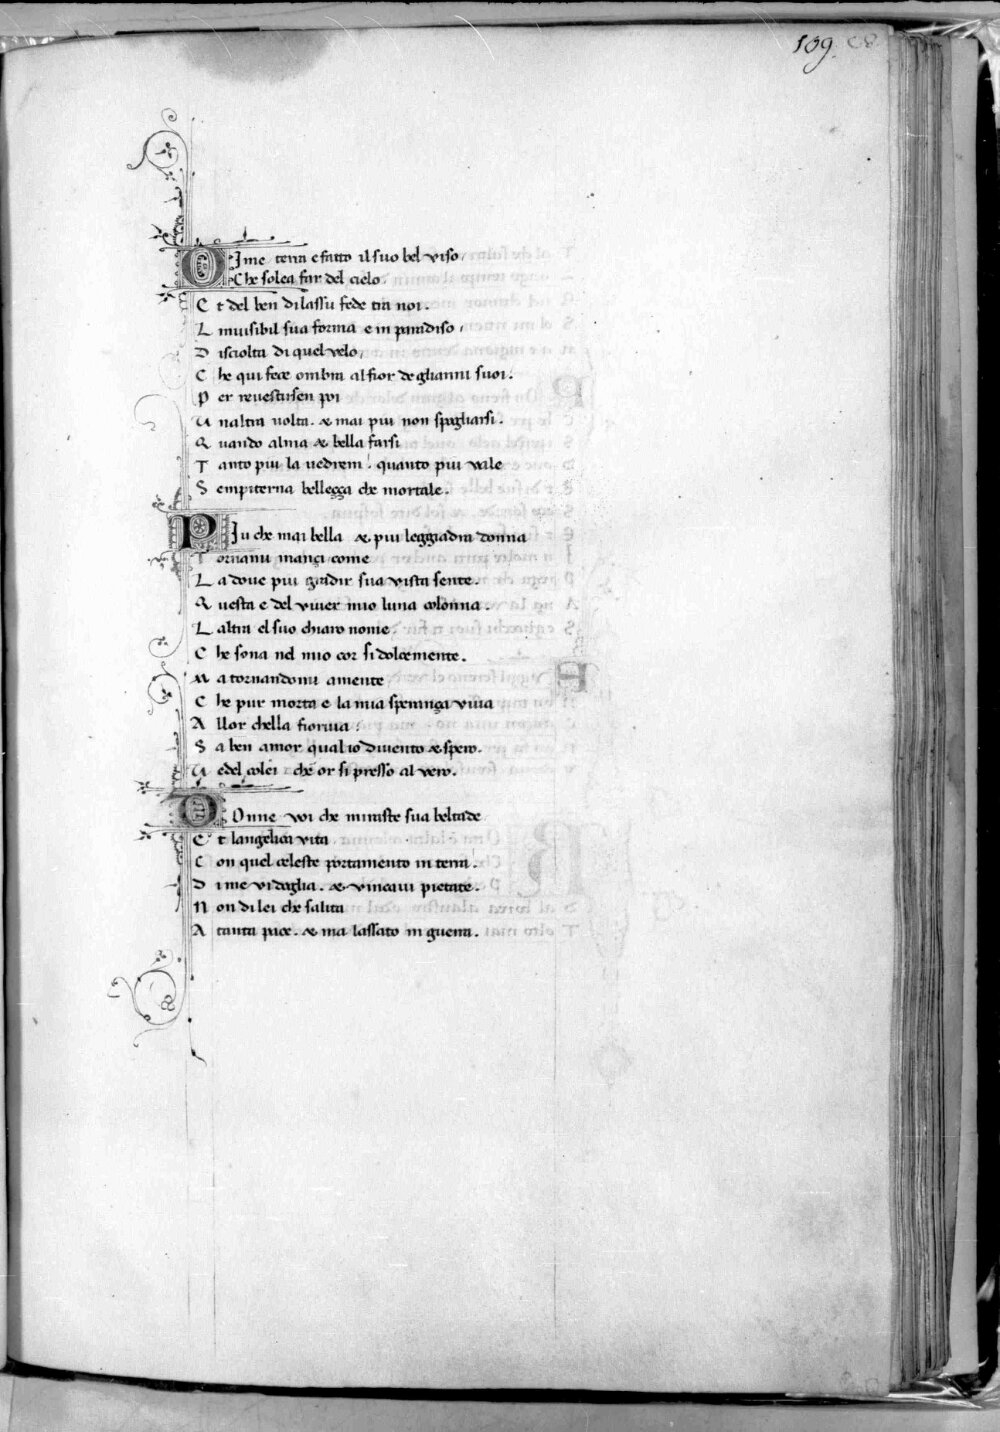 109.
OIme terra e fatto il suo bel viso
Che solea far del cielo
Et del ben di lassu fede tra noi.
Linuisibil sua forma e in paradiso,
Disciolta di quel velo,
Che qui fece ombra al fior de glianni suoi.
Per reuestirsen poi
Unaltra uolta. & mai piu non spogliarsi.
Quando alma & bella farsi
Tanto piu la uedrem quanto piu vale
Sempiterna bellezza che mortale.
PIu che mai bella & piu leggiadra donna
Tornami inançi come
La doue piu gradir sua vista sente.
Questa e del viuer mio luna colonna.
Laltra el suo chiaro nome
Che sona nel mio cor si dolcemente.
Ma tornandomi amente
Che pur morta e la mia sperança viua
Allor chella fioriua
Sa ben amor qual io diuento & spero.
Uedel colei che or si presso al vero.
DOnne voi che miraste sua beltade
Et langelica vita
Con quel celeste portamento in terra.
Di me vi doglia. & vincaui pietate.
Non di lei che salita
A tanta pace. & ma lassato in guerra.